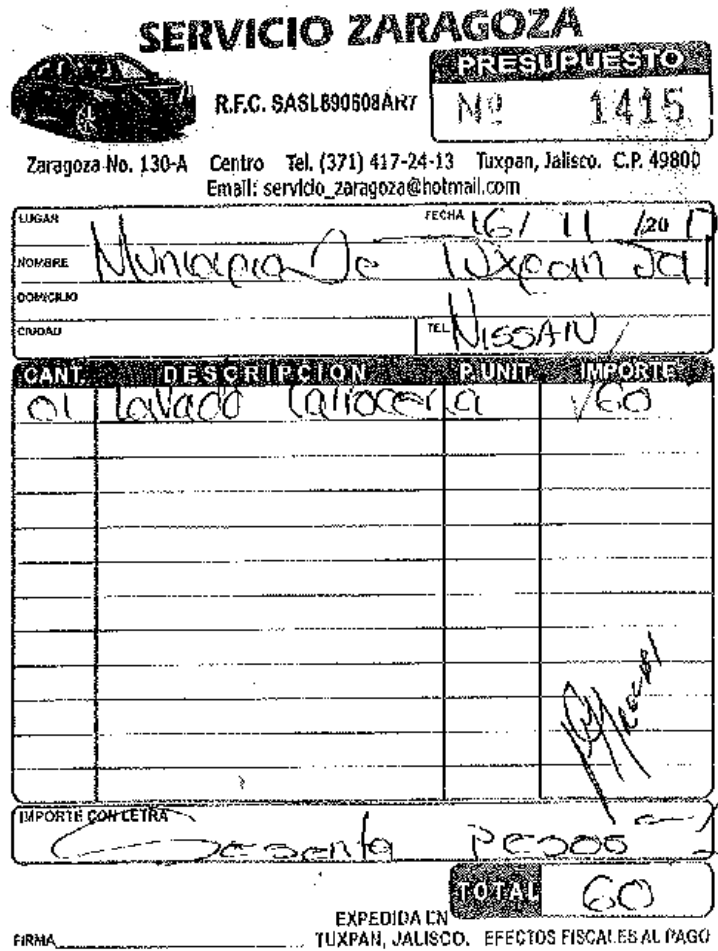 SERVICIO ZARAGOZA
PRESUPUESTO
R.F.C. SASL890608AR7
Nº 1415
Zaragoza No. 130-A Centro Tel. (371) 417-24-13 Tuxpan, Jalisco. C.P. 49800
Email: servicio_zaragoza@hotmail.com
LUGAR FECHA 16/ 11 /20 17
NOMBRE Municipio De Tuxpan Jal
DOMICILIO
CIUDAD TEL. NISSAN
CANT. DESCRIPCION P. UNIT. IMPORTE
01 Lavado Carroceria 60
Recibi
IMPORTE CON LETRA
Sesenta Pesos
TOTAL 60
EXPEDIDA EN
FIRMA TUXPAN, JALISCO. EFECTOS FISCALES AL PAGO